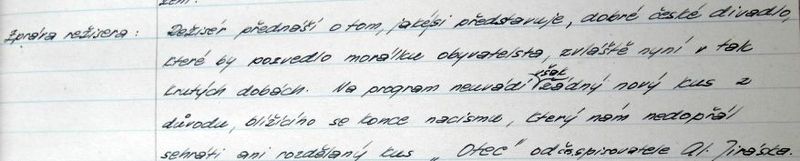 Zpráva režisera: Režisér přednáší o tom, jak si představuje, dobré české divadlo,
které by pozvedlo morálku obyvatelsta, zvláště nyní v tak
krutých dobách. Na program neuvádí však žádný nový kus z
důvodu, blížícího se konce nacismu, který nám nedopřál
sehráti ani rozdělaný kus „Otec" od čs. spisovatele Al. Jiráska.